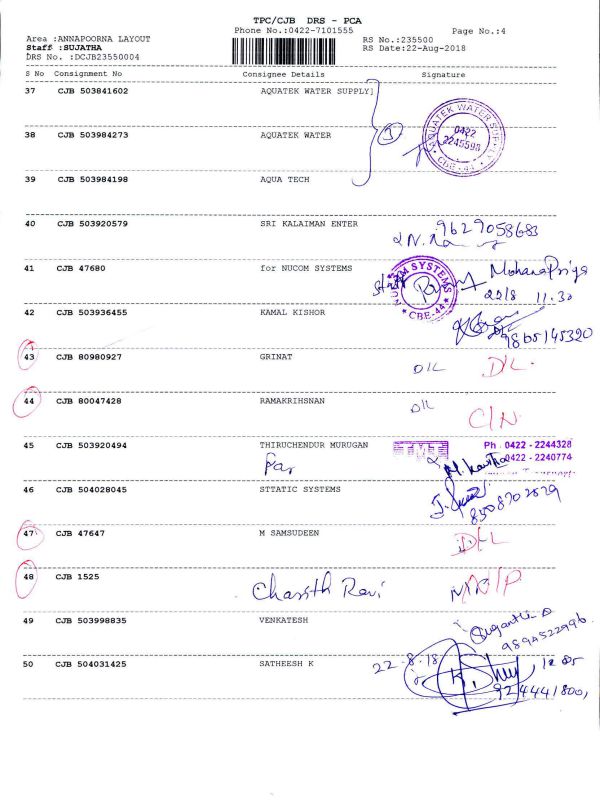 TPC/CJB DRS - PCA
Phone No.:0422-7101555
Page No.:4
Area :ANNAPOORNA LAYOUT
Staff :SUJATHA
DRS No. :DCJB23550004
RS No.:235500
RS Date:22-Aug-2018
S No Consignment No Consignee Details Signature
37 CJB 503841602 AQUATEK WATER SUPPLY]
38 CJB 503984273 AQUATEK WATER
3
AQUATEK WATER SUPPLY
0422
2245598
CBE-44
39 CJB 503984198 AQUA TECH
40 CJB 503920579 SRI KALAIMAN ENTER
9629058683
41 CJB 47680 for NUCOM SYSTEMS
NUCOM SYSTEMS
CBE-44
MohanaPriya
22/8 11.30
42 CJB 503936455 KAMAL KISHOR
9865145320
43 CJB 80980927 GRINAT O/L D/L
44 CJB 80047428 RAMAKRIHSNAN O/L C/N
45 CJB 503920494 THIRUCHENDUR MURUGAN
Ph : 0422 - 2244328
0422 - 2240774
46 CJB 504028045 STTATIC SYSTEMS
8508702579
47 CJB 47647 M SAMSUDEEN D/L
48 CJB 1525 N/P
49 CJB 503998835 VENKATESH
Suganthi
50 CJB 504031425 SATHEESH K 22-8-18
9244441800,